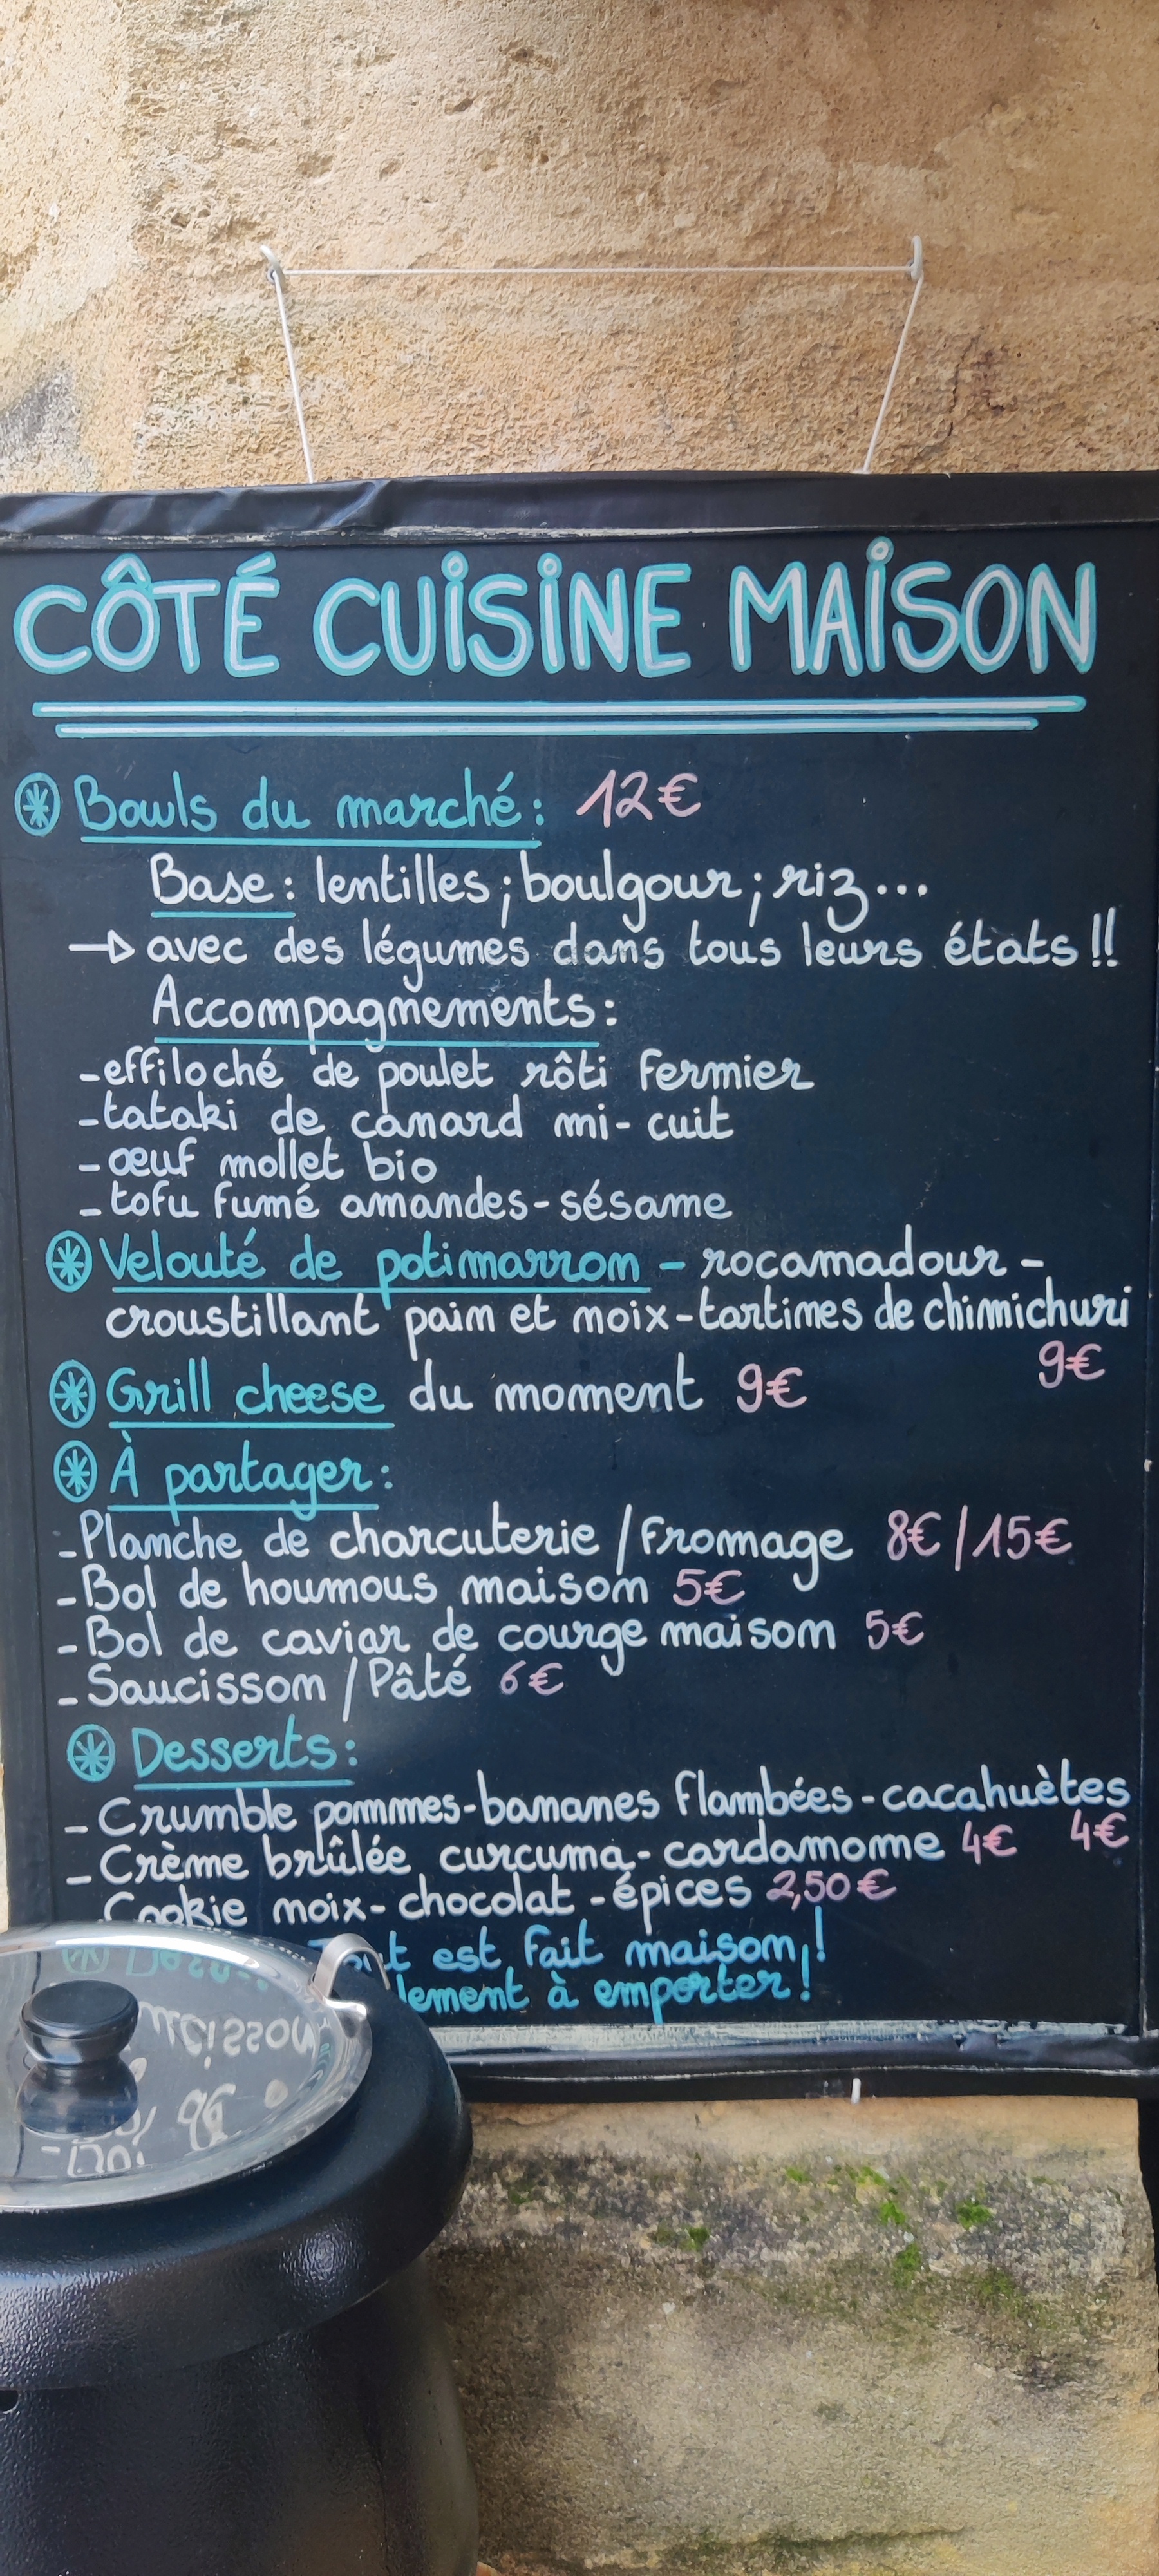 CÔTÉ CUISINE MAISON
Bowls du marché : 12€
Base : lentilles ; boulgour ; riz...
→ avec des légumes dans tous leurs états !!
Accompagnements :
- effiloché de poulet rôti fermier
- tataki de canard mi-cuit
- œuf mollet bio
- tofu fumé amandes-sésame
Velouté de potimarron - rocamadour -
croustillant pain et noix - tartines de chimichuri
9€
Grill cheese du moment 9€
À partager :
- Planche de charcuterie / fromage 8€ / 15€
- Bol de houmous maison 5€
- Bol de caviar de courge maison 5€
- Saucisson / Pâté 6€
Desserts :
- Crumble pommes-bananes flambées - cacahuètes
4€
- Crème brûlée curcuma - cardamome 4€
Cookie noix - chocolat - épices 2,50€
Tout est fait maison !
à emporter !